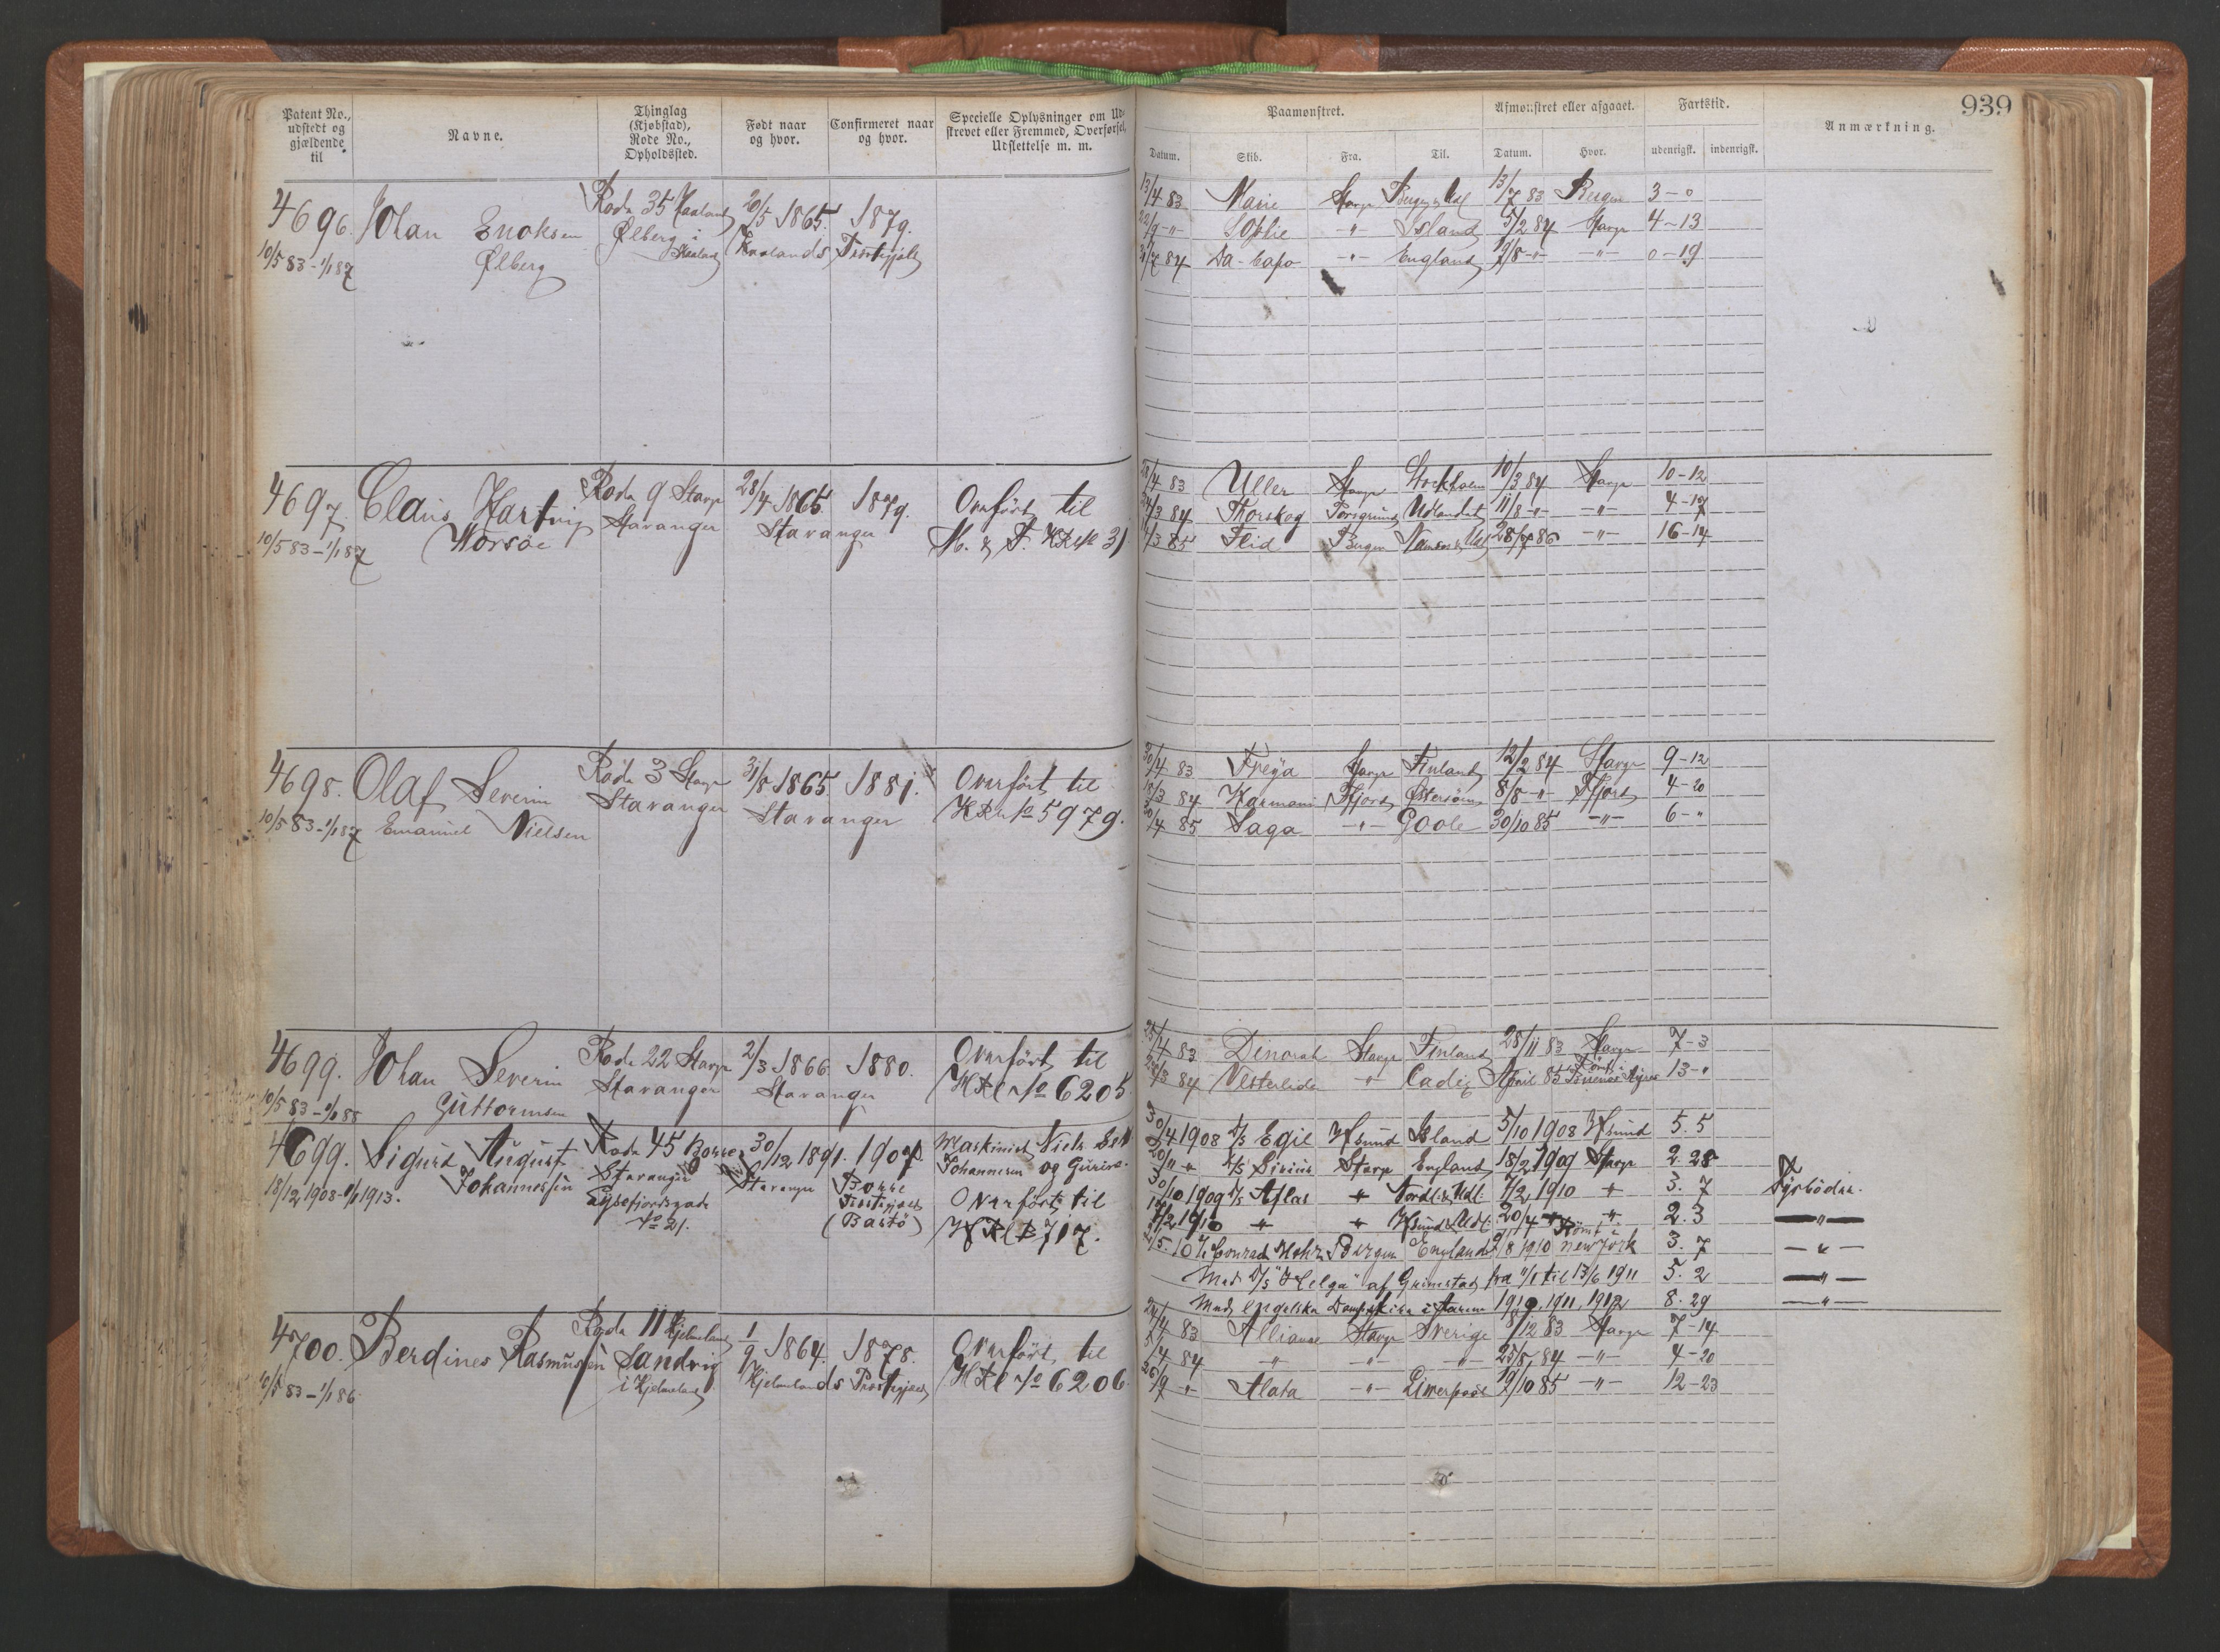 939
Patent No., udstedt og gjældende til
Navne.
Thinglag (Kjøbstad), Rode No., Opholdssted.
Født naar og hvor.
Confirmeret naar og hvor.
Specielle Oplysninger om Ud-
skrevet eller Fremmed, Overførsel,
Udslettelse m. m.
Paamønstret.
Afmønstret eller afgaaet.
Fartstid.
Anmærkning.
Datum. Skib. Fra. Til. Datum. Hvor. udenrigsk. indenrigsk.
4696. Johan Enoksen Rode 35 Haaland 20/5 1865. 1879.
10/5 83 - 1/1 87 Ølberg Ølberg i Haaland Haalands Præstegjeld
13/4 83 Marie Stavgr Bergen & Udl 13/7 83 Bergen 3-0
22/9 -"- Sophie -"- Island 5/2 84 Stavgr 4-13
31/7 84 Da-Capo -"- England 19/8 -"- -"- 0-19
4697. Claus Hartvig Rode 9 Stavgr 28/4 1865. 1879. Overført til
10/5 83 - 1/1 87 Worsøe Stavanger Stavanger M. & F. HRl No 31
28/4 83 Uller Stavgr Stockholm 10/3 84 Stavgr 10-12
24/3 84 Thorskog Porsgrund Udlandet 11/8 -"- -"- 4-17
14/3 85 Flid Bergen 28/7 86 -"- 16-14
4698. Olaf Severin Rode 3 Stavgr 31/8 1865. 1881. Overført til
10/5 83 - 1/1 87 Emanuel Nielsen Stavanger Stavanger HRl No 5979.
30/4 83 Freya Stavgr Finland 12/2 84 Stavgr 9-12
18/3 84 Ffjord Østersøen 8/8 -"- Ffjord 4-20
30/4 85 Saga -"- Goole 30/10 85 -"- 6-"
4699. Johan Severin Rode 22 Stavgr 2/3 1866. 1880. Overført til
10/5 83 - 1/1 88 Guttormsen Stavanger Stavanger HRl No 6205
25/4 83 Dinorah Stavgr Finland 28/11 83 Stavgr 7-3
84 Vesterlide " Cadiz April 85 Rømt Buenos Ayres 13-"
4699. Sigurd August Rode 45 Borre 30/12 1891. 1907. Maskinist Niels
18/12 1908 - 1/1 1913. Johannessen Stavanger Stavanger Borre Johannesen og Gurine
Lysefjordsgade Præstegjæld Overført til
No 21. (Bastø) HRl B 717.
30/4 1908 D/S Egil Hsund Island 5/10 1908 Hsund 5.5
20/11 " D/S Sirius Stavgr England 18/2 1909 Stavgr 2.28
30/10 1909 D/S Atlas " Nordl. & Udl. 7/2 1910 " 3.7 Fyrbøder.
1910 " " Hsund & Udl. 20/4 " " 2.3 -"-
5.10 Conrad Mohr Bergen England 8 1910 Rømt New York 3.7 -"-
Med D/S "Helga" af Grimstad fra 11/1 til 13/6 1911 5.2 -"-
Med engelske Dampskibe i 1910, 1911, 1912 8.29 -"-
4700. Berdines Rasmussen Rode 11 Hjelmeland 1/9 1864. 1878. Overført til
10/5 83 - 1/1 86. Sandvig i Hjelmeland Hjelmelands Præstegjæld HRl No 6206
24/4 83 Alliance Stavgr Sverige 8/12 83 Stavgr 7-14
5/4 84 -"- -"- -"- 25/8 84 -"- 4-20
26/9 -"- Alata -"- Liverpool 19/10 85 -"- 12-23